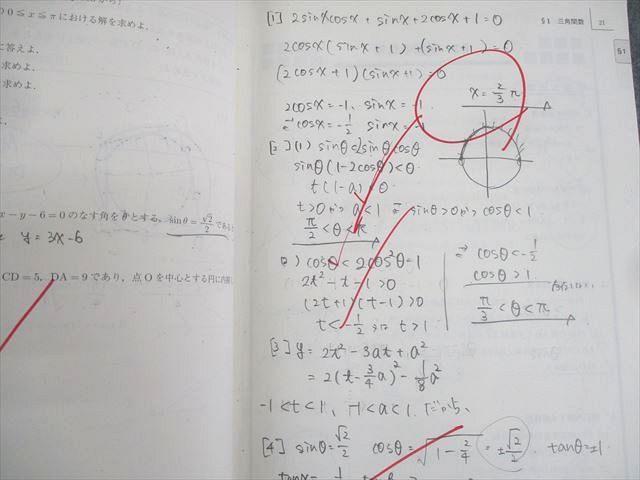 0≦x≦πにおける解を求めよ.
に答えよ.
求めよ.
求めよ.
x−y−6=0のなす角をθとする.
sinθ=√2/2
y=3x-6
CD=5, DA=9であり、点Oを中心とする円に内接
§1 三角関数 21
§1
[1] 2sinxcosx + sinx + 2cosx + 1 = 0
2cosx(sinx + 1) + (sinx + 1) = 0
(2cosx + 1)(sinx + 1) = 0
2cosx = -1, sinx = -1
cosx = -1/2 sinx = -1
x = 2/3 π
[2] (1) sinθ < 2sinθcosθ
sinθ(1-2cosθ) < 0
t > 0から a < 1 sinθ > 0から cosθ < 1
π/2 < θ < π
) cosθ < 2cos²θ-1
2t² - t - 1 > 0
(2t+1)(t-1) > 0
t < -1/2, t > 1
cosθ < -1/2
cosθ > 1
π/3 < θ < π
[3] y = 2t² - 3at + a²
= 2(t - 3/4 a)² - 1/8 a²
-1 < t < 1, -1 < a < 1 だから、
[4] sinθ = √2/2 cosθ = √(1 - 2/4) = ±√2/2 tanθ = ±1